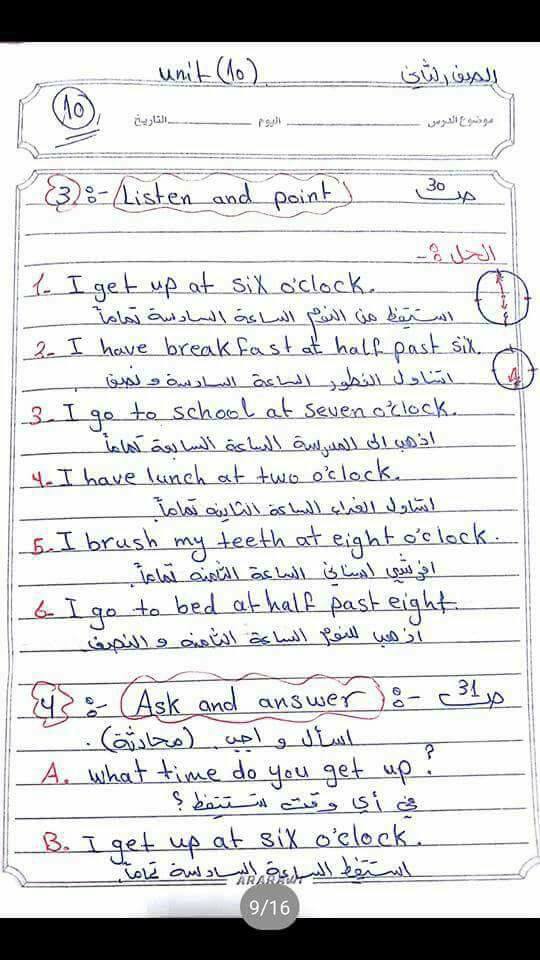 unit (10)
الصف الثاني
10
موضوع الدرس
اليوم
التاريخ
3 :- Listen and point
ص 30
الحل :-
1- I get up at six o'clock.
استيقظ من النوم الساعة السادسة تماماً
2- I have breakfast at half past six.
اتناول الفطور الساعة السادسة و نصف
3- I go to school at seven o'clock.
اذهب الى المدرسة الساعة السابعة تماماً
4- I have lunch at two o'clock.
اتناول الغداء الساعة الثانية تماماً.
5- I brush my teeth at eight o'clock.
افرشي اسناني الساعة الثامنة تماماً.
6- I go to bed at half past eight.
اذهب للنوم الساعة الثامنة و النصف
4 :- Ask and answer :-
ص 31
اسأل و اجب. (محادثة).
A. what time do you get up?
في أي وقت تستيقظ؟
B. I get up at six o'clock.
استيقظ الساعة السادسة تماماً.
9/16